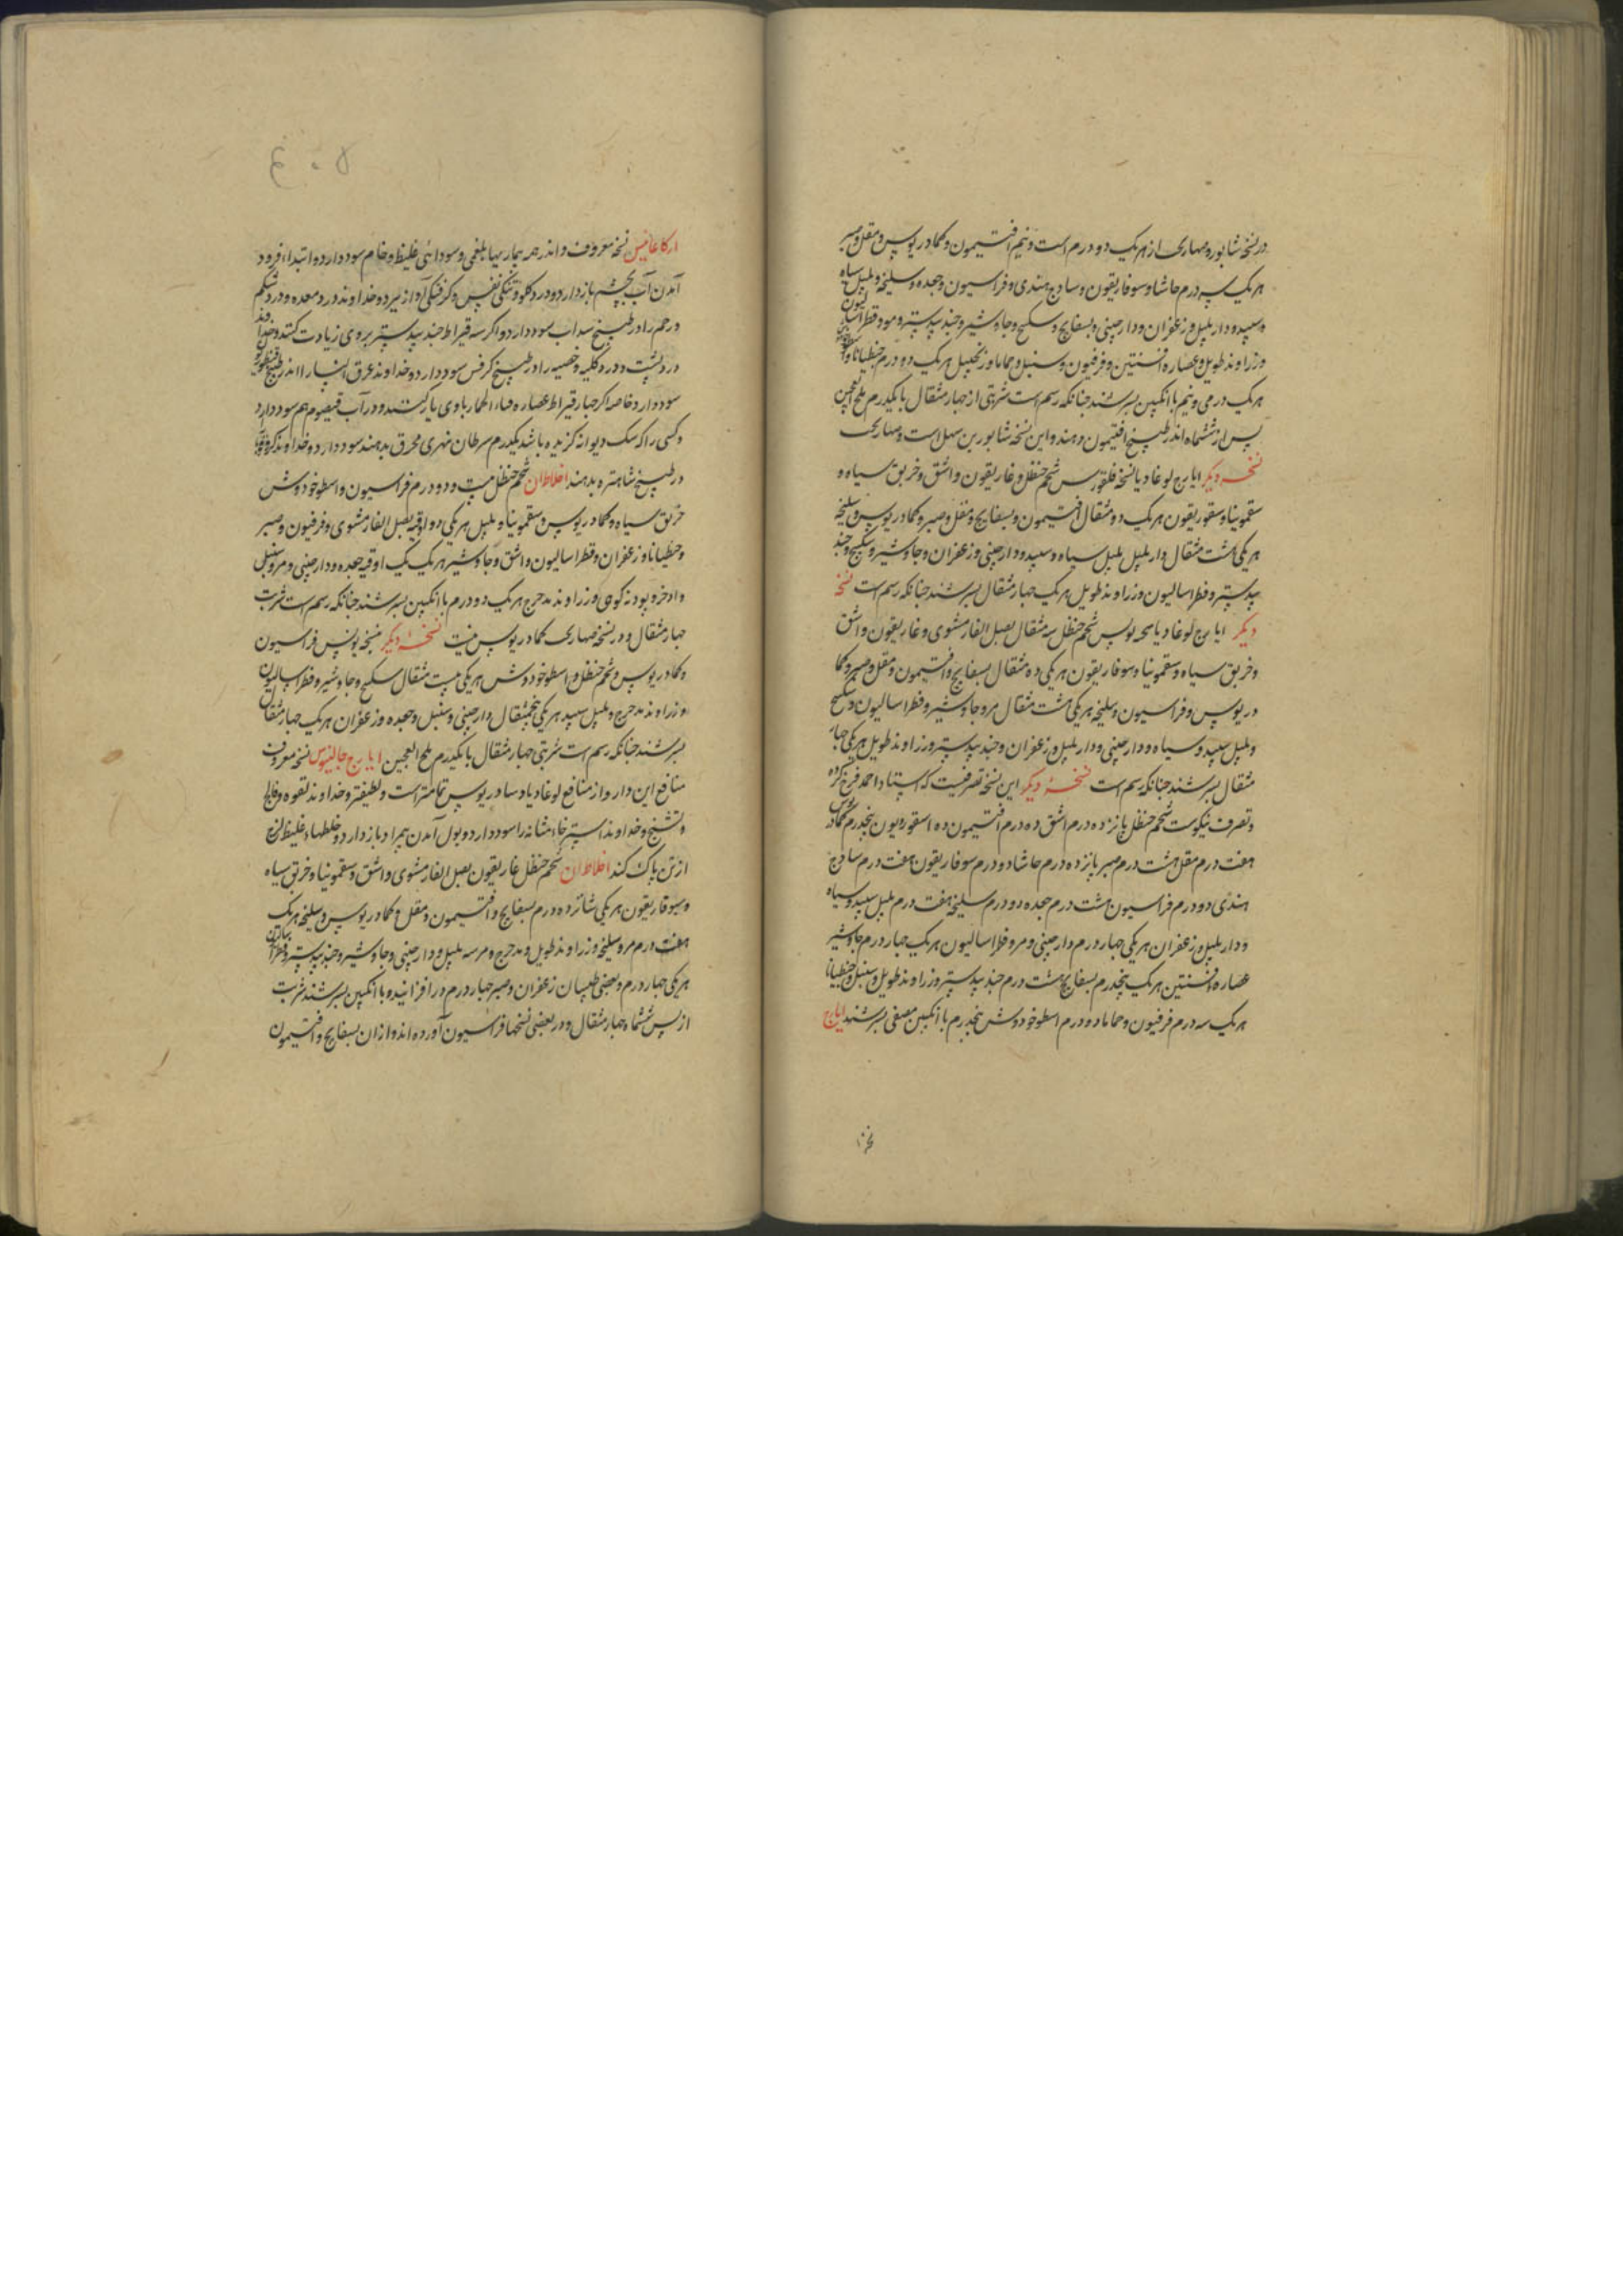 در نسخه شابور و مهاریحت از هر یک دو درم است و نیم افتیمون و کمادریوس و مقل و صبر
هر یک سه درم حاشا و سوفاریقون و ساذج هندی و فراسیون و جعده و سلیخه و پلپل سیاه
و سپید و دار پلپل و زعفران و دارچینی و بسفایج و سکبینج و جاوشیر و جندبیدستر و مر و فطراسالیون
و زراوند طویل و عصاره افسنتین و فرفیون و سنبل و حماما و زنجبیل هر یک دو درم جنطیانا و
هر یک درمی و نیم با انگبین بسرشند چنانکه رسم است شربتی از چهار مثقال با یکدرم ملح العجین
پس از ششماه اندر طبیخ افتیمون دهند و این نسخه شابور بن سهل است و مهاریحت
نسخه دیگر ایارج لوغاذیا نسخه فلغورس شحم حنظل و غاریقون و اشق و خربق سیاه و
سقمونیا و سقوریقون هر یک دو مثقال افتیمون و بسفایج و مقل و صبر و کمادریوس و سلیخه
هر یکی هشت مثقال دار پلپل پلپل سیاه و سپید و دارچینی و زعفران و جاوشیر و سکبینج و جند
بیدستر و فطراسالیون و زراوند طویل هر یک چهار مثقال بسرشند چنانکه رسم است نسخه
دیگر ایارج لوغاذیا نسخه بولس شحم حنظل سه مثقال بصل الفار مشوی و غاریقون و اشق
و خربق سیاه و سقمونیا و سوفاریقون هر یکی ده مثقال بسفایج و افتیمون و مقل و صبر و کما
دریوس و فراسیون و سلیخه هر یکی هشت مثقال مر و جاوشیر و فطراسالیون و سکبینج
و پلپل سپید و سیاه و دارچینی و دار پلپل و زعفران و جندبیدستر و زراوند طویل هر یکی چهار
مثقال بسرشند چنانکه رسم است نسخه دیگر این نسخه تصرفیست که استاد احمد فرخ کرده
و تصرف نیکوست شحم حنظل پانزده درم اشق ده درم افتیمون ده اسقوردیون پنجدرم کمادریوس
هفت درم مقل هشت درم صبر پانزده درم حاشا دو درم سوفاریقون هفت درم ساذج
هندی دو درم فراسیون هشت درم جعده دو درم سلیخه هفت درم پلپل سپید و سیاه
و دار پلپل و زعفران هر یکی چهار درم دارچینی و مر و فطراسالیون هر یک چهار درم جاوشیر
عصاره افسنتین هر یک پنجدرم بسفایج هشت درم جندبیدستر و زراوند طویل و سنبل و جنطیانا
هر یک سه درم فرفیون و حماما دو درم اسطوخودوش پنجدرم با انگبین مصفی بسرشند ایارج
ارکاغانیس نسخه معروف و اندر همه بیماریهاء بلغمی و سودائی غلیظ و خام سود دارد و ابتداء فرود
آمدن آب بچشم باز دارد و درد گلو و تنگی نفس و گرفتگی آواز ببرد و خداوند درد معده و درد شکم
و رحم را در طبیخ سداب سود دارد و اگر سه قیراط جندبیدستر بروی زیادت کنند و خداوند
درد پشت و درد کلیه و خصیه را در طبیخ کرفس سود دارد و خداوند عرق النسا را اندر طبیخ قنطوریون
سود دارد خاصه اگر چهار قیراط عصاره قثاء الحمار باوی یار کنند و در آب قیصوم هم سود دارد
و کسی را که سگ دیوانه گزیده باشد یکدرم سرطان نهری محرق بدهند سود دارد و خداوند
در طبیخ شاهتره بدهند اخلاط آن شحم حنظل بیست و دو درم فراسیون و اسطوخودوش
خربق سیاه و کمادریوس و سقمونیا و پلپل هر یکی دو اوقیه بصل الفار مشوی و فرفیون و صبر
و جنطیانا و زعفران و فطراسالیون و اشق و جاوشیر هر یک یک اوقیه جعده و دارچینی و مر و سنبل
و اذخر و پودنه کوهی و زراوند مدحرج هر یک دو درم با انگبین بسرشند چنانکه رسم است شربت
چهار مثقال و در نسخه مهاریحت کمادریوس نیست نسخه دیگر نسخه بولس فراسیون
و کمادریوس و شحم حنظل و اسطوخودوش هر یکی بیست مثقال سکبینج و جاوشیر و فطراسالیون
و زراوند مدحرج و پلپل سپید هر یکی پنجمثقال دارچینی و سنبل و جعده و زعفران هر یک چهار مثقال
بسرشند چنانکه رسم است شربتی چهار مثقال با یکدرم ملح العجین ایارج جالینوس نسخه معروف
منافع این دارو از منافع لوغاذیا و سادریوس تمامتر است و لطیفتر و خداوند لقوه و فالج
و تشنج و خداوند استرخاء مثانه را سود دارد و بول آمدن بیمراد باز دارد و خلطهاء غلیظ لزج
از تن پاک کند اخلاط آن شحم حنظل غاریقون بصل الفار مشوی و اشق و سقمونیا و خربق سیاه
و سوفاریقون هر یکی شانزده درم بسفایج و افتیمون و مقل و کمادریوس و سلیخه هر یک
هفت درم مر و سلیخه و زراوند طویل و مدحرج و هر سه پلپل و دارچینی و جاوشیر و جندبیدستر و فطراسالیون
هر یکی چهار درم و بعضی طبیبان زعفران و صبر چهار درم در افزایند و با انگبین بسرشند شربت
از پس ششماه چهار مثقال و در بعضی نسخها فراسیون آورده اند و از آن بسفایج و افتیمون